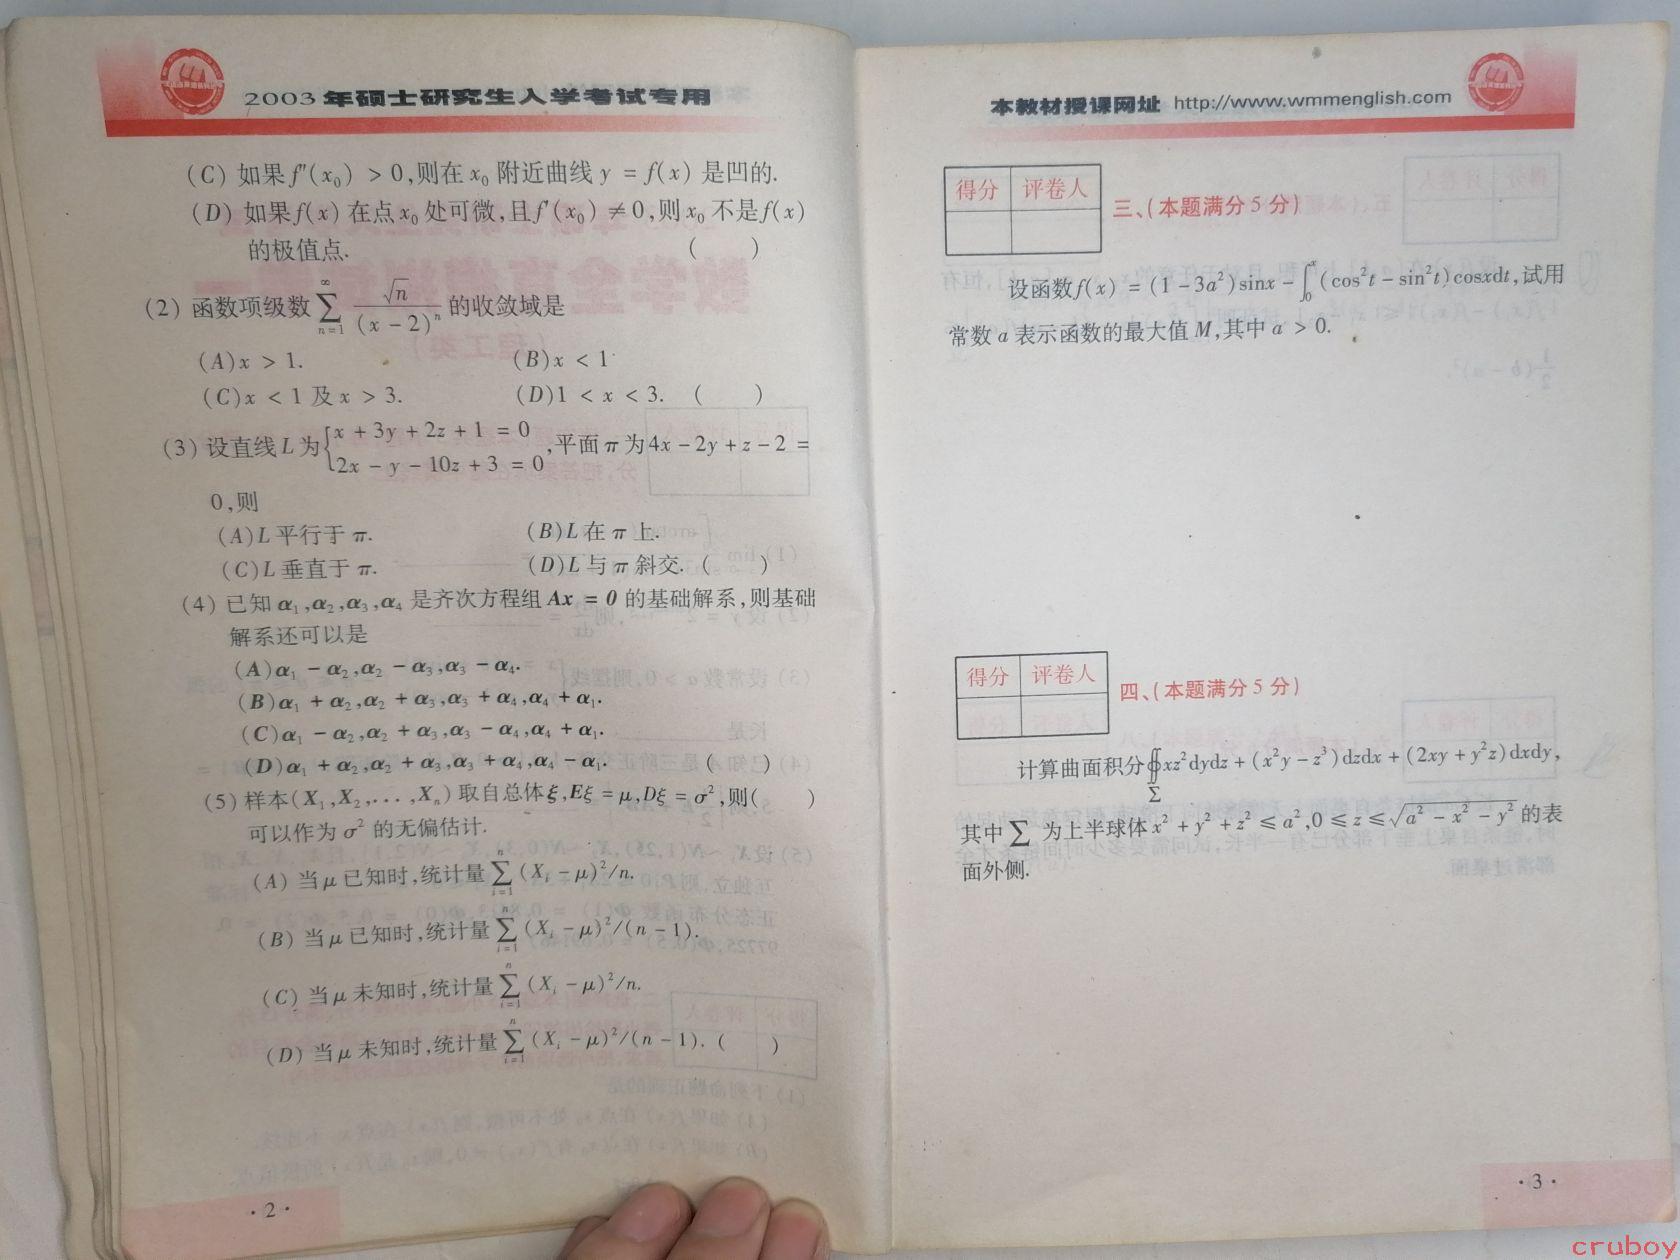 2003年硕士研究生入学考试专用
(C) 如果 f″(x₀) > 0,则在 x₀ 附近曲线 y = f(x) 是凹的.
(D) 如果 f(x) 在点 x₀ 处可微,且 f′(x₀) ≠ 0,则 x₀ 不是 f(x)
的极值点. ( )
(2) 函数项级数 ∑_{n=1}^{∞} √n/(x − 2)ⁿ 的收敛域是
(A) x > 1. (B) x < 1
(C) x < 1 及 x > 3. (D) 1 < x < 3. ( )
(3) 设直线 L 为 { x + 3y + 2z + 1 = 0
2x − y − 10z + 3 = 0 ,平面 π 为 4x − 2y + z − 2 =
0,则
(A) L 平行于 π. (B) L 在 π 上.
(C) L 垂直于 π. (D) L 与 π 斜交. ( )
(4) 已知 α₁,α₂,α₃,α₄ 是齐次方程组 Ax = 0 的基础解系,则基础
解系还可以是
(A) α₁ − α₂,α₂ − α₃,α₃ − α₄.
(B) α₁ + α₂,α₂ + α₃,α₃ + α₄,α₄ + α₁.
(C) α₁ − α₂,α₂ + α₃,α₃ − α₄,α₄ + α₁.
(D) α₁ + α₂,α₂ + α₃,α₃ + α₄,α₄ − α₁. ( )
(5) 样本 (X₁,X₂,...,Xₙ) 取自总体 ξ,Eξ = μ,Dξ = σ²,则( )
可以作为 σ² 的无偏估计.
(A) 当 μ 已知时,统计量 ∑_{i=1}^{n} (Xᵢ − μ)²/n.
(B) 当 μ 已知时,统计量 ∑_{i=1}^{n} (Xᵢ − μ)²/(n − 1).
(C) 当 μ 未知时,统计量 ∑_{i=1}^{n} (Xᵢ − μ)²/n.
(D) 当 μ 未知时,统计量 ∑_{i=1}^{n} (Xᵢ − μ)²/(n − 1). ( )
· 2 ·
本教材授课网址 http://www.wmmenglish.com
得分 评卷人
三、(本题满分 5 分)
设函数 f(x) = (1 − 3a²)sinx − ∫₀ˣ (cos²t − sin²t)cosxdt,试用
常数 a 表示函数的最大值 M,其中 a > 0.
得分 评卷人
四、(本题满分 5 分)
计算曲面积分 ∯_Σ xz²dydz + (x²y − z³)dzdx + (2xy + y²z)dxdy,
其中 ∑ 为上半球体 x² + y² + z² ≤ a²,0 ≤ z ≤ √(a² − x² − y²) 的表
面外侧.
· 3 ·
cruboy